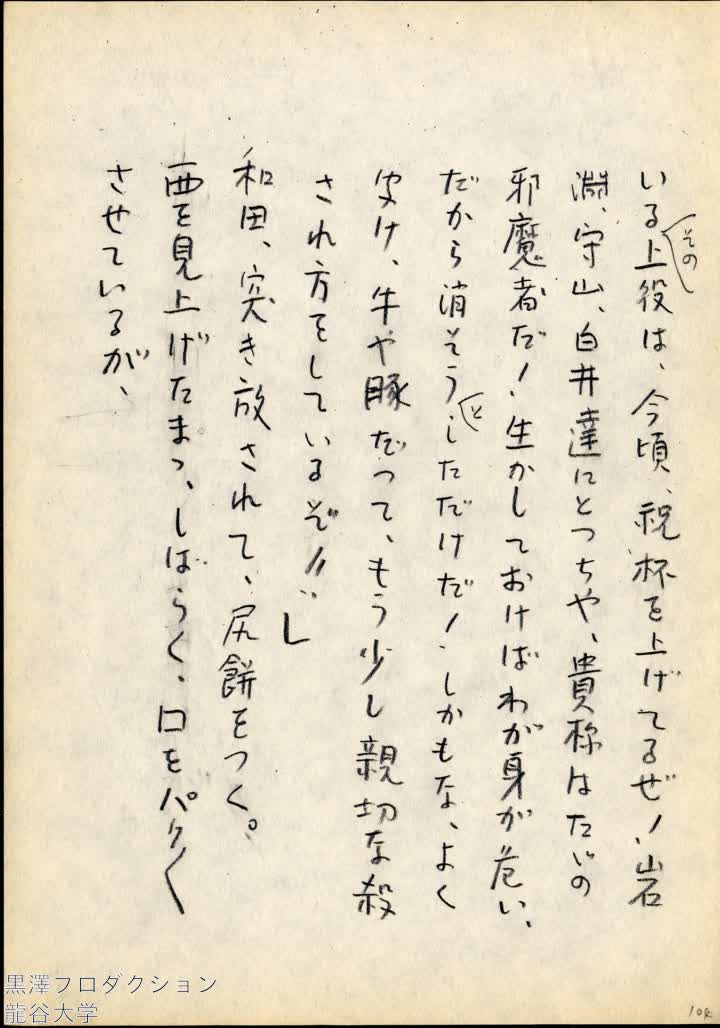 いる上役は、今頃、祝杯を上げてるぜ！岩
その
淵、守山、白井達にとつちや、貴様はたゞの
邪魔者だ！生かしておけばわが身が危い、
だから消そうとしただけだ！しかもな、よく
聞け、牛や豚だって、もう少し親切な殺
され方をしているぞ！！」
和田、突き放されて、尻餅をつく。
西を見上げたまゝ、しばらく、口をパク〱
させているが、
黒澤プロダクション
龍谷大学
104